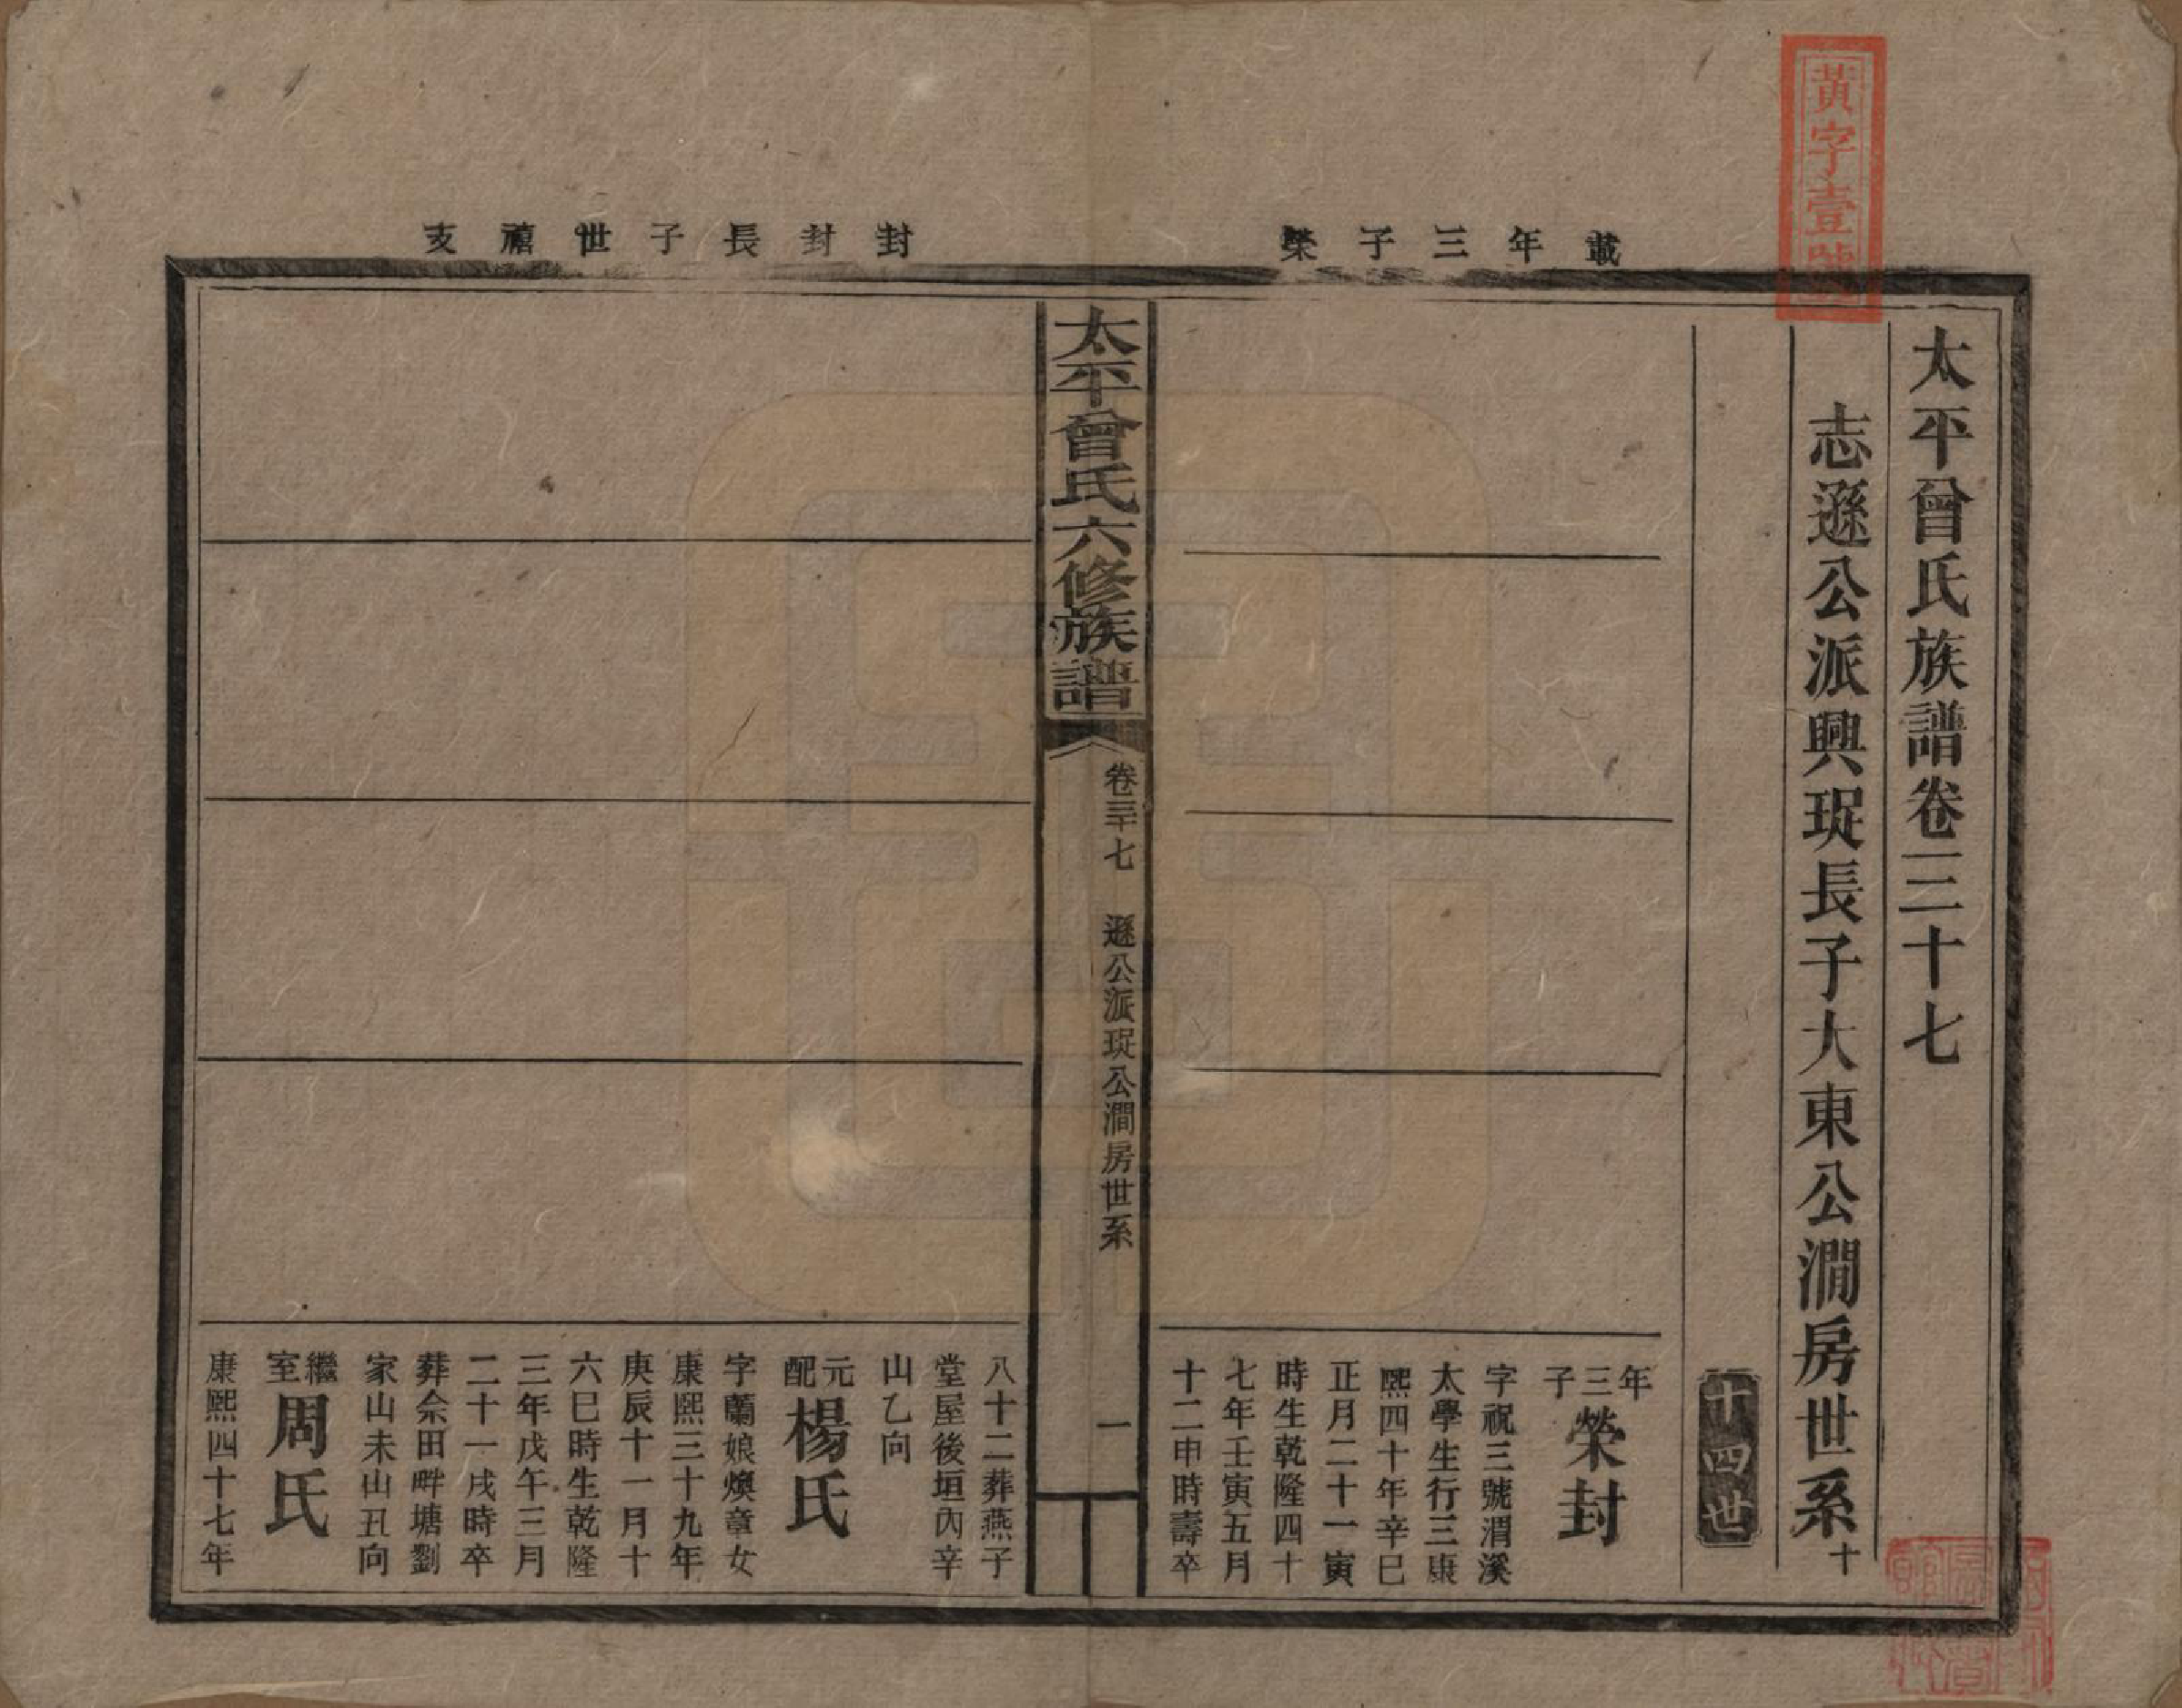 黃字壹號
載年三子榮
封封長子世禧支
太平曾氏族譜卷三十七
志遜公派興珽長子大東公澗房世系十
十四世
年三子榮封
字祝三號渭溪
太學生行三康
熙四十年辛巳
正月二十一寅
時生乾隆四十
七年壬寅五月
十二申時壽卒
太平曾氏六修族譜
卷三十七
遜公派珽公澗房世系
一
八十二葬燕子
堂屋後垣內辛
山乙向
元配楊氏
字蘭娘煥章女
康熙三十九年
庚辰十一月十
六巳時生乾隆
三年戊午三月
二十一戌時卒
葬佘田畔塘劉
家山未山丑向
繼室周氏
康熙四十七年